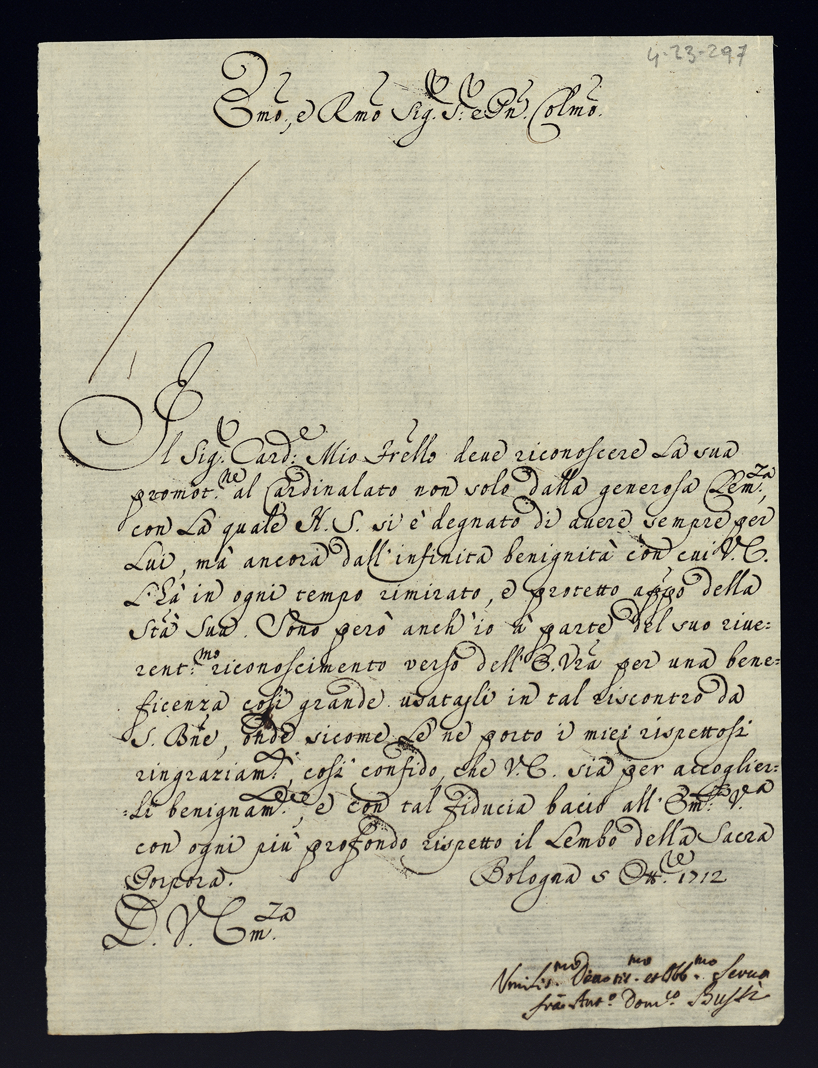 4-23-297
Emo., e Rmo Sig.r S.r e Pn. Colmo.
Il Sig.r Card.e Mio Frello deue riconoscere La sua
promot.ne al Cardinalato non solo dalla generosa Clem.za,
con La quale N. S. si è degnato di auere sempre per
Lui, mà ancora dall'infinita benignità con cui V. E.
L'hà in ogni tempo rimirato, e protetto appo della
Stà Sua. Sono però anch'io à parte del suo riue=
rent.mo riconoscimento verso dell'E. Vra per una bene=
ficenza così grande usatagli in tal riscontro da
S. Bne, onde sicome Le ne porto i miei rispettosi
ringraziam.ti, così confido, che V. E. sia per accoglier=
=li benignam.te, e con tal fiducia bacio all' Em.za V.a
con ogni più profondo rispetto il Lembo della Sacra
Porpora. Bologna 5 Ott.re 1712
D. V. Em.za
Vmilis.mo Deuotis.mo et Obb.mo Seruo
fra Ant.o Dom.co Bussi